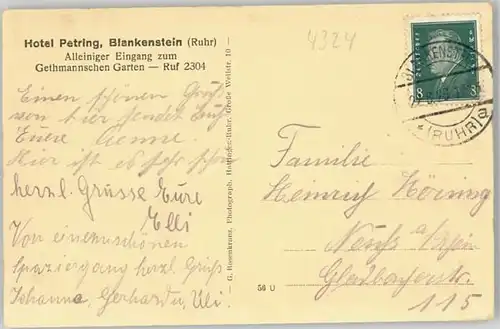 Hotel Petring, Blankenstein (Ruhr)
Alleiniger Eingang zum
Gethmannschen Garten — Ruf 2304
4324
Einen schönen Gruß
von hier sendet Euch
Eure Aenne.
Hier ist es sehr schön
herzl. Grüsse Eure
Elli
Von einem schönen
Spaziergang herzl. Grüße
Johanna, Gerhard u. Uli.
G. Rosenkranz, Photograph. Hattingen-Ruhr, Große Weilstr. 10
58 U
8 8
BLANKENSTEIN
(RUHR) a
Familie
Heinrich Höning
Neuß a Rhein
Gladbacherstr.
115